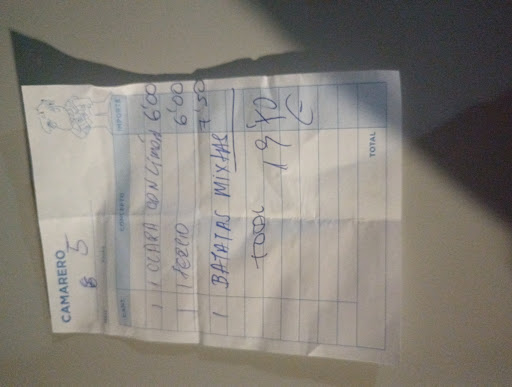 CAMARERO
B 5
CANT. CONCEPTO IMPORTE
1 1 CLARA CON LIMON 6'00
1 1 TERCIO 6'00
1 BATATAS MIXTAS 7'50
TOTAL 19'50 €
TOTAL